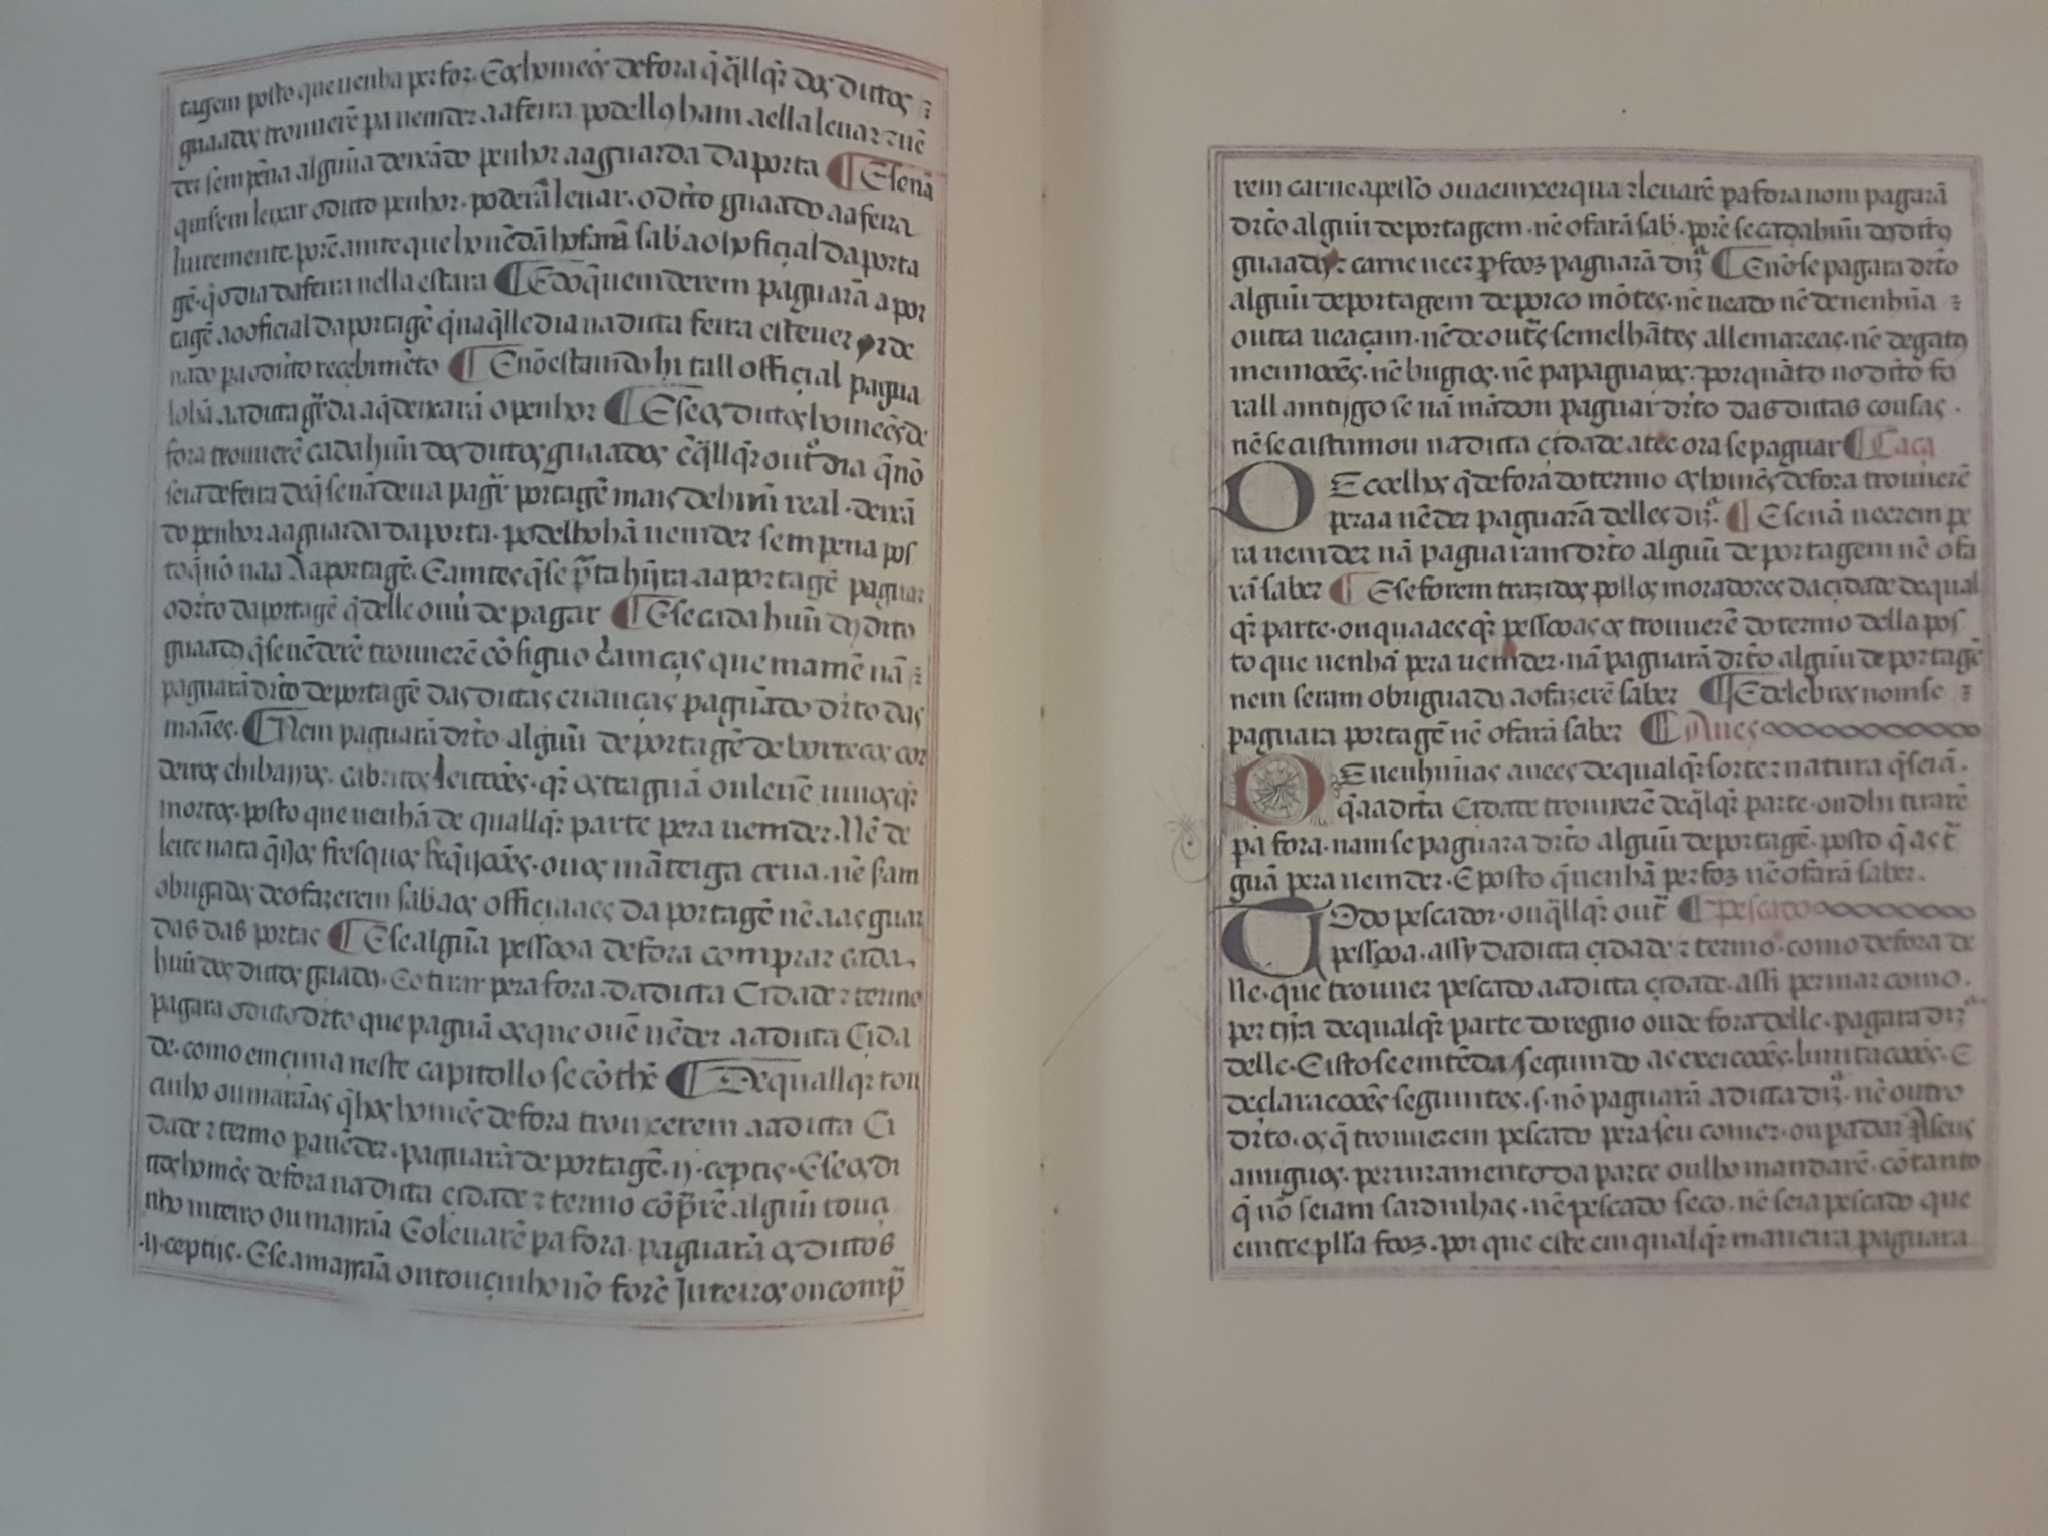 tagem posto que uenha per foz. E os homeẽs de fora q̃ q̃llqr̃ dos ditos
guaados trouuerẽ pa uemder aa feira podello ham a ella leuar ⁊ uẽ
der sem pẽna algũua deixãdo penhor aa guarda da porta ¶ E se nã
quisem leixar o dito penhor. poderã leuar. o dito guaado aa feira
liuremente. porẽ amte que ho uẽdã ho farã sab̃ ao hoficial da porta
gẽ. q̃ o dia da feira nella estara ¶ E do q̃ uemderem paguarã a por
tagẽ ao oficial da portagẽ q̃ naq̃lle dia na dita feira esteuer orde
nado pa o dito reçebimẽto ¶ E nõ estamdo hi tall offiçial pagua
lo hã aa dita gr̃da a q̃ deixarã o penhor ¶ E se os ditos homeẽs de
fora trouuerẽ cada huũ dos ditos guaados ẽ q̃llqr̃ out̃o dia q̃ nõ
seia de feira de q̃ se nã deua pagr̃ portagẽ mais de huũ real. deixã
do penhor aa guarda da porta. podelho hã uemder sem pena pos
to q̃ nõ uaa aa portagẽ. E amtes q̃ se p̃ta hijra aa portagẽ paguar
o dr̃to da portagẽ q̃ delle ouũ de pagar ¶ E se cada huũ dos ditos
guaados q̃ se uẽderẽ trouuerẽ cõsiguo criamças que mamẽ nã
paguarã dr̃to de portagẽ das ditas crianças paguãdo dr̃to das
maães. ¶ Nem paguarã dr̃to alguũ de portagẽ de borregos cor
deiros chibarros. cabritos leitoões. qr̃ os traguã ou leuẽ uiuos qr̃
mortos. posto que uenhã de quallqr̃ parte pera uemder. Nẽ de
leite nata q̃ijos fresquos ẽ reqijoões. ouos mãteiga crua. nẽ sam
obrigados de o fazerem sab̃ aos offiçiaaes da portagẽ nẽ aas guar
das das portas ¶ E se algũa pessoa de fora comprar cada
huũ dos ditos guados. E o tirar pera fora. da dita Cidade ⁊ termo
pagara o dito dr̃to que paguã os que ouẽ uẽder aa dita Çida
de. como em çima neste capitollo se cõthẽ ¶ De quallqr̃ tou
cinho ou marãas q̃ hos homeẽs de fora trouxerem aa dita Ci
dade ⁊ termo pa uẽder. paguarã de portagẽ. ij. ceptis. E se os di
tos homẽs de fora na dita çidade ⁊ termo cõp̃rẽ alguũ touçi
nho inteiro ou marrãa E o leuarẽ pa fora. paguarã os ditos
.ij. ceptijs. E se a marrãa ou touçinho nõ forẽ Inteiros ou comp̃
rem carne a pesso ou a emxerqua ⁊ leuarẽ pa fora nom pagarã
dr̃to alguũ de portagem. nẽ o farã sab̃. porẽ se cada huũ dos ditos
guaados ⁊ carne ueer p̃ fooz paguarã diz.ª ¶ E nõ se pagara dr̃to
alguũ de portagem de porco mõtes. nẽ ueado nẽ de nenhũa
outra ueaçam. nẽ de outr̃s semelhãtes allemareas. nẽ de gatos
meimoões. nẽ bugios. nẽ papaguayos. porquãto no dito fo
rall amtijgo se nã mãdou paguar dr̃to das ditas cousas.
nẽ se custumou na dita çidade atee ora se paguar ¶ Caça
DE coelhos q̃ de fora do termo os homẽs de fora trouuerẽ
peraa uẽder paguarã delles diz.ª ¶ E se nã ueerem pe
ra uemder nã paguaram dr̃to alguũ de portagem nẽ o fa
rã saber ¶ E se forem trazidos pollos moradores da çidade de qual
qr̃ parte. ou quaaesqr̃ pessoas os trouuerẽ do termo della pos
to que uenhã pera uemder. nã paguarã dr̃to alguũ de portagẽ
nem seram obriguados ao fazerẽ saber ¶ E de lebres nom se
paguara portagẽ nẽ o farã saber ¶ Aues
DE nenhũuas auees de qualqr̃ sorte ⁊ natura q̃ seiã.
q̃ aa dita Cidade trouuerẽ de q̃lqr̃ parte. ou dhi tirarẽ
pa fora. nam se paguara dr̃to alguũ de portagẽ. posto q̃ as t̃
guã pera uemder. E posto q̃ uenhã per foz nẽ o farã saber.
TOdo pescador. ou q̃llqr̃ out̃ ¶ pescado
pessoa. assy da dita çidade ⁊ termo. como de fora de
lle. que trouuer pescado aa dita çidade. assi per mar como.
per trr̃a de qualqr̃ parte do regno ou de fora delle. pagara diz.ª
delle. E isto se emtẽda segundo as exeicoões. limitacoões. E
declaracoões seguintes. s. nõ paguarã a dita diz.ª nẽ outro
dr̃to. os q̃ trouuerem pescado pera seu comer. ou pa dar A seus
amiguos. per iuramento da parte ou lho mandarẽ. cõ tanto
q̃ nõ seiam sardinhas. nẽ pescado seco. nẽ seia pescado que
emtre plla fooz. por que este em qualqr̃ maneira paguara